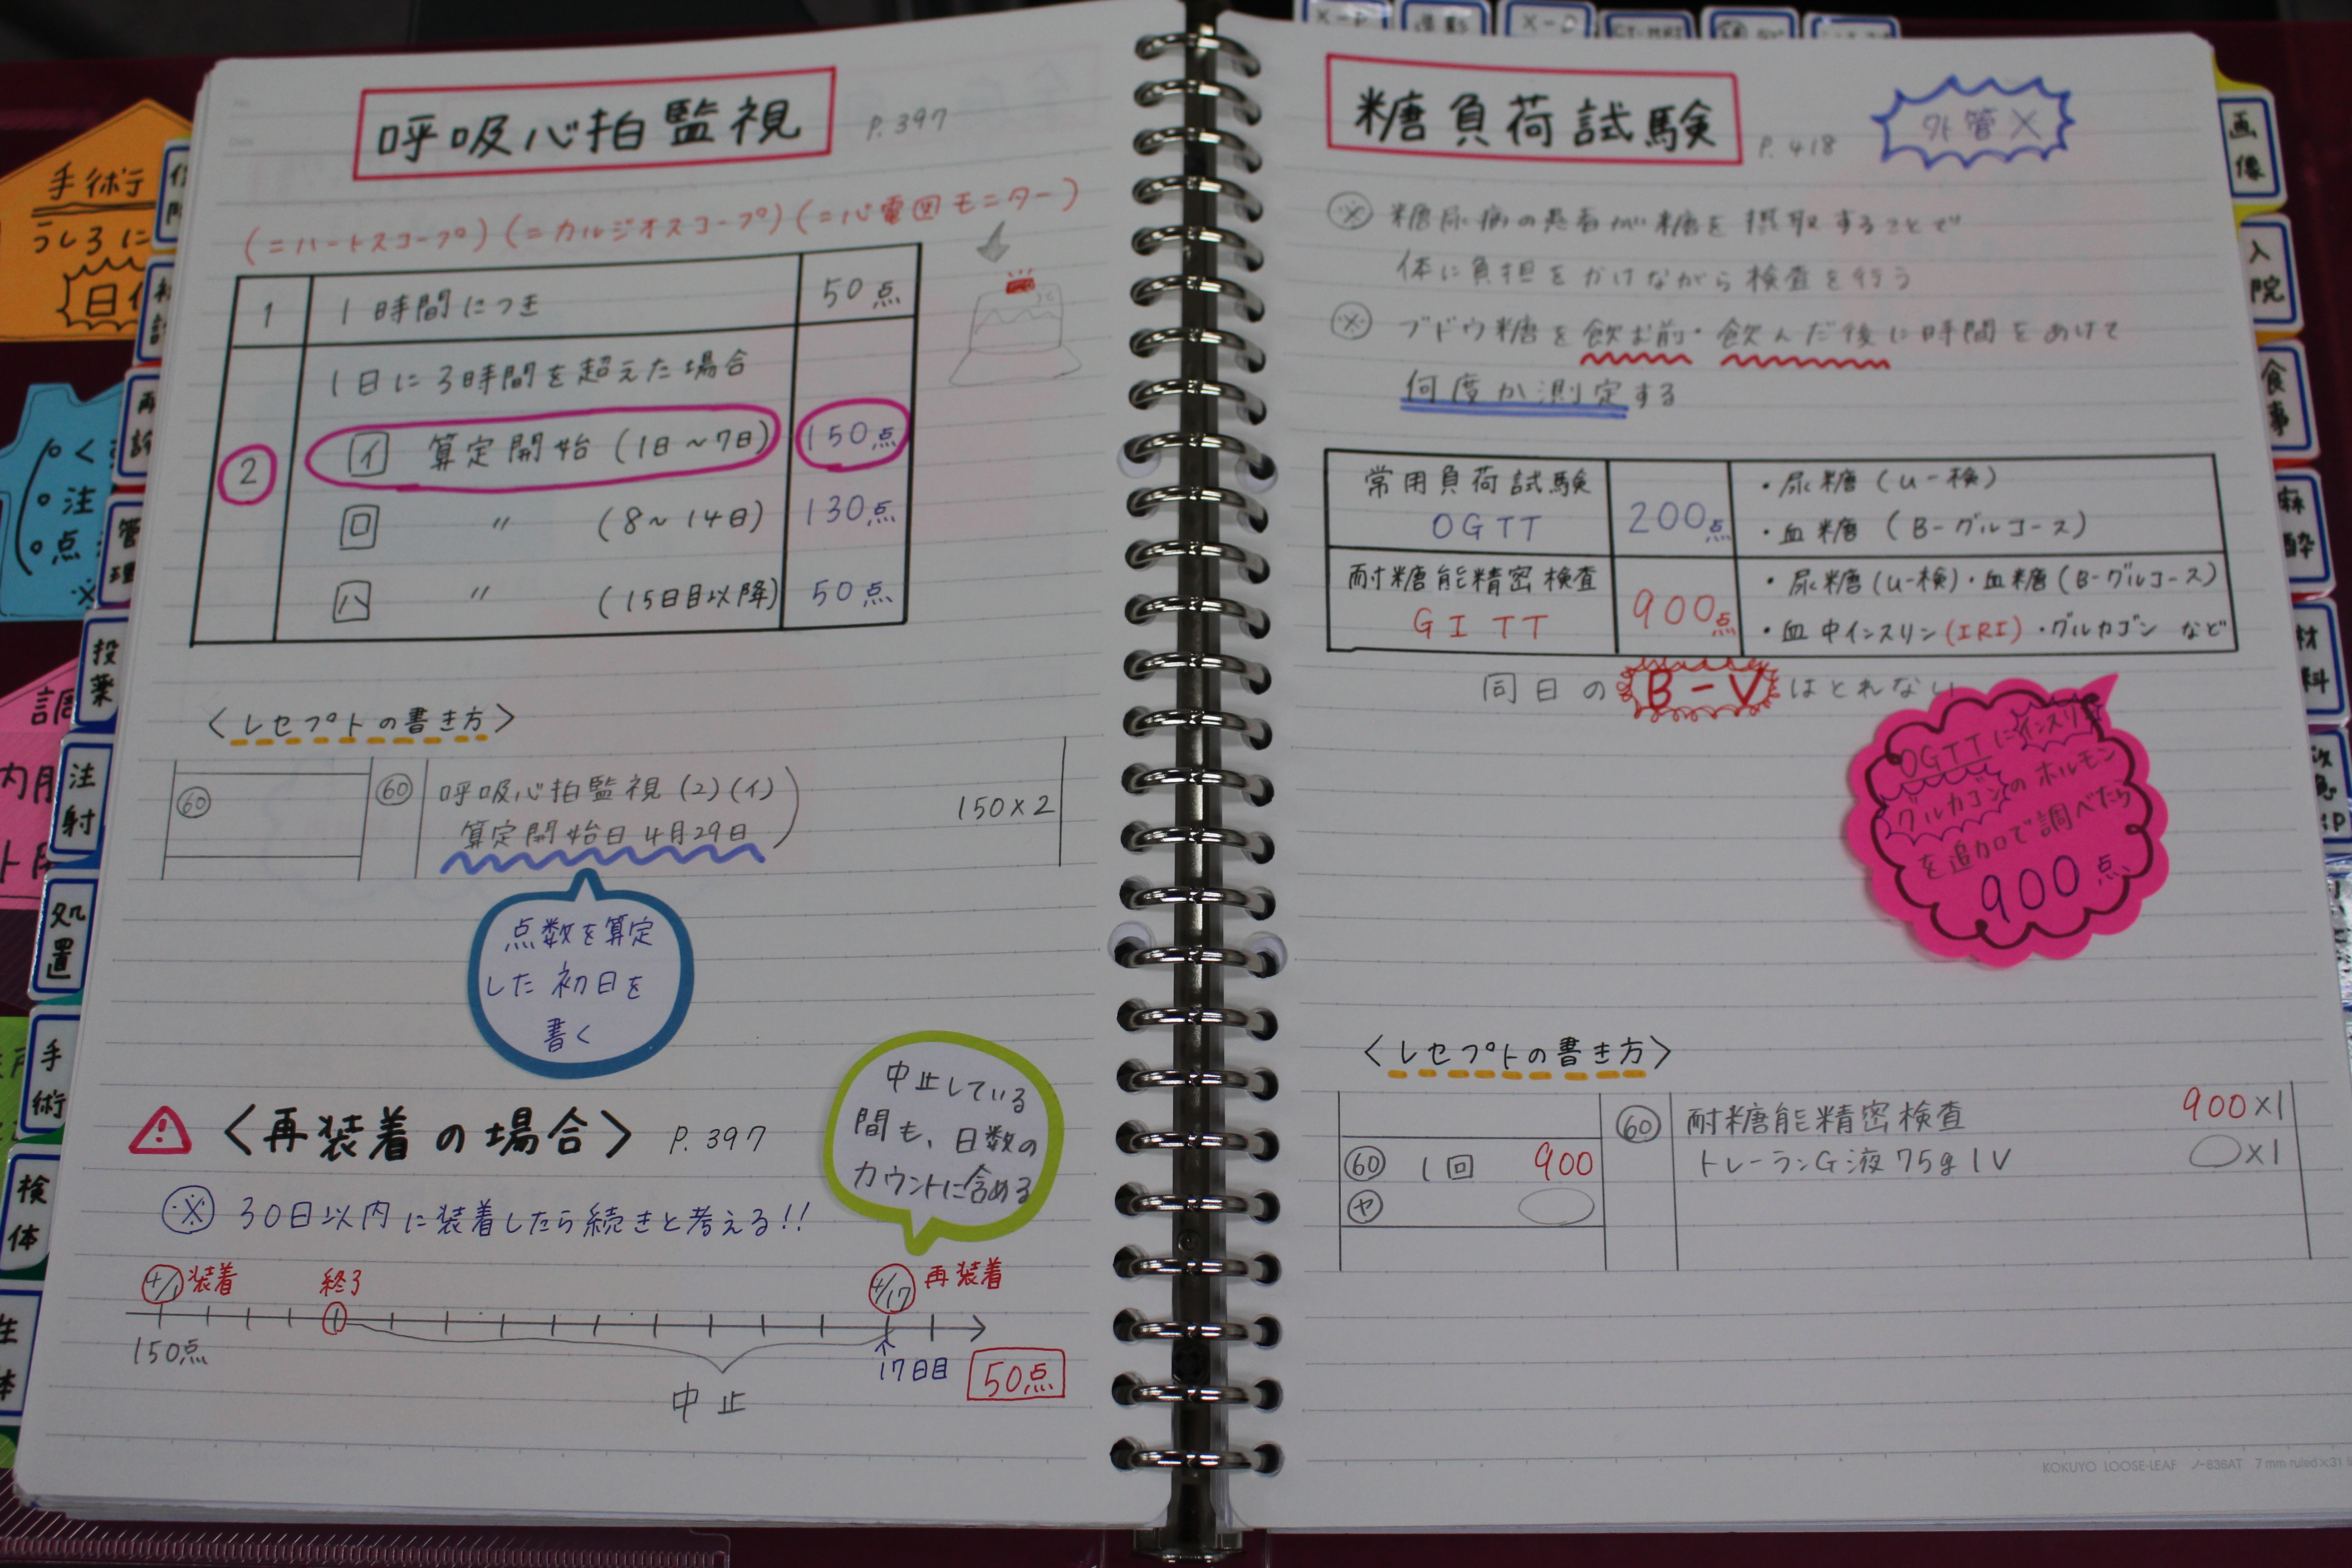 呼吸心拍監視 P.397
(=ハートスコープ)(=カルジオスコープ)(=心電図モニター)
1 1時間につき 50点
2 1日に3時間を超えた場合
イ 算定開始(1日～7日) 150点
ロ 〃 (8～14日) 130点
ハ 〃 (15日目以降) 50点
〈レセプトの書き方〉
60 60 呼吸心拍監視(2)(イ)
算定開始日 4月29日 150×2
点数を算定
した初日を
書く
〈再装着の場合〉 P.397
中止している
間も、日数の
カウントに含める
※ 30日以内に装着したら続きと考える!!
4/1 装着 終了 4/17 再装着
150点 17日目 50点
中止
糖負荷試験 P.418
外管×
※ 糖尿病の患者が糖を摂取することで
体に負担をかけながら検査を行う
※ ブドウ糖を飲む前・飲んだ後に時間をあけて
何度か測定する
常用負荷試験 200点 ・尿糖(U-検)
OGTT ・血糖(B-グルコース)
耐糖能精密検査 900点 ・尿糖(U-検)・血糖(B-グルコース)
GITT ・血中インスリン(IRI)・グルカゴン など
同日のB-Vはとれない
OGTTにインスリン
グルカゴンのホルモン
を追加で調べたら
900点
〈レセプトの書き方〉
60 耐糖能精密検査 900×1
60 1回 900 トレーランG液75g1V ×1
ヤ
KOKUYO LOOSE-LEAF ノ-836AT 7mm ruled×31
手術
うしろに
投薬
注射
処置
手術
検体
管理
画像
入院
食事
麻酔
X-P
X-P
CT・MRI